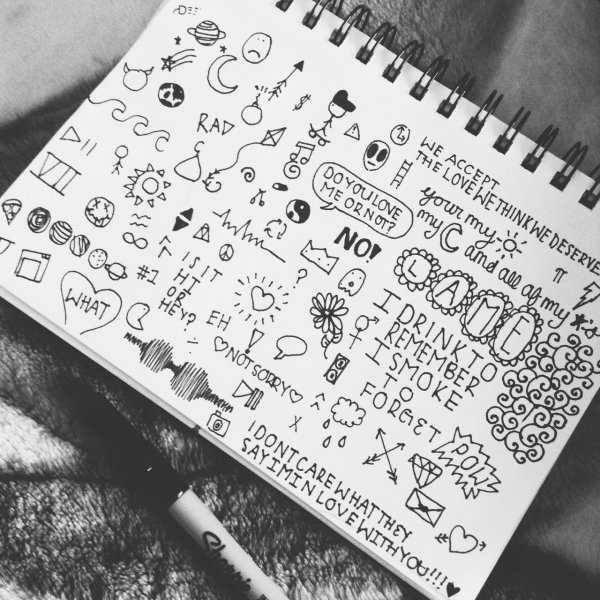 RAD
VII
WE ACCEPT
THE LOVE WE THINK WE DESERVE
your my
my C and all of my ★s
DO YOU LOVE
ME OR NOT?
NO!
LAME
$
π
?
IS IT
HI
OR
HEY?
#1
WHAT
EH
!
♡NOT SORRY♡
X
I DRINK TO
REMEMBER
I SMOKE
TO
FORGET
POW!
I DONT CARE WHAT THEY
SAY IM IN LOVE WITH YOU!!!♥
Sharpie